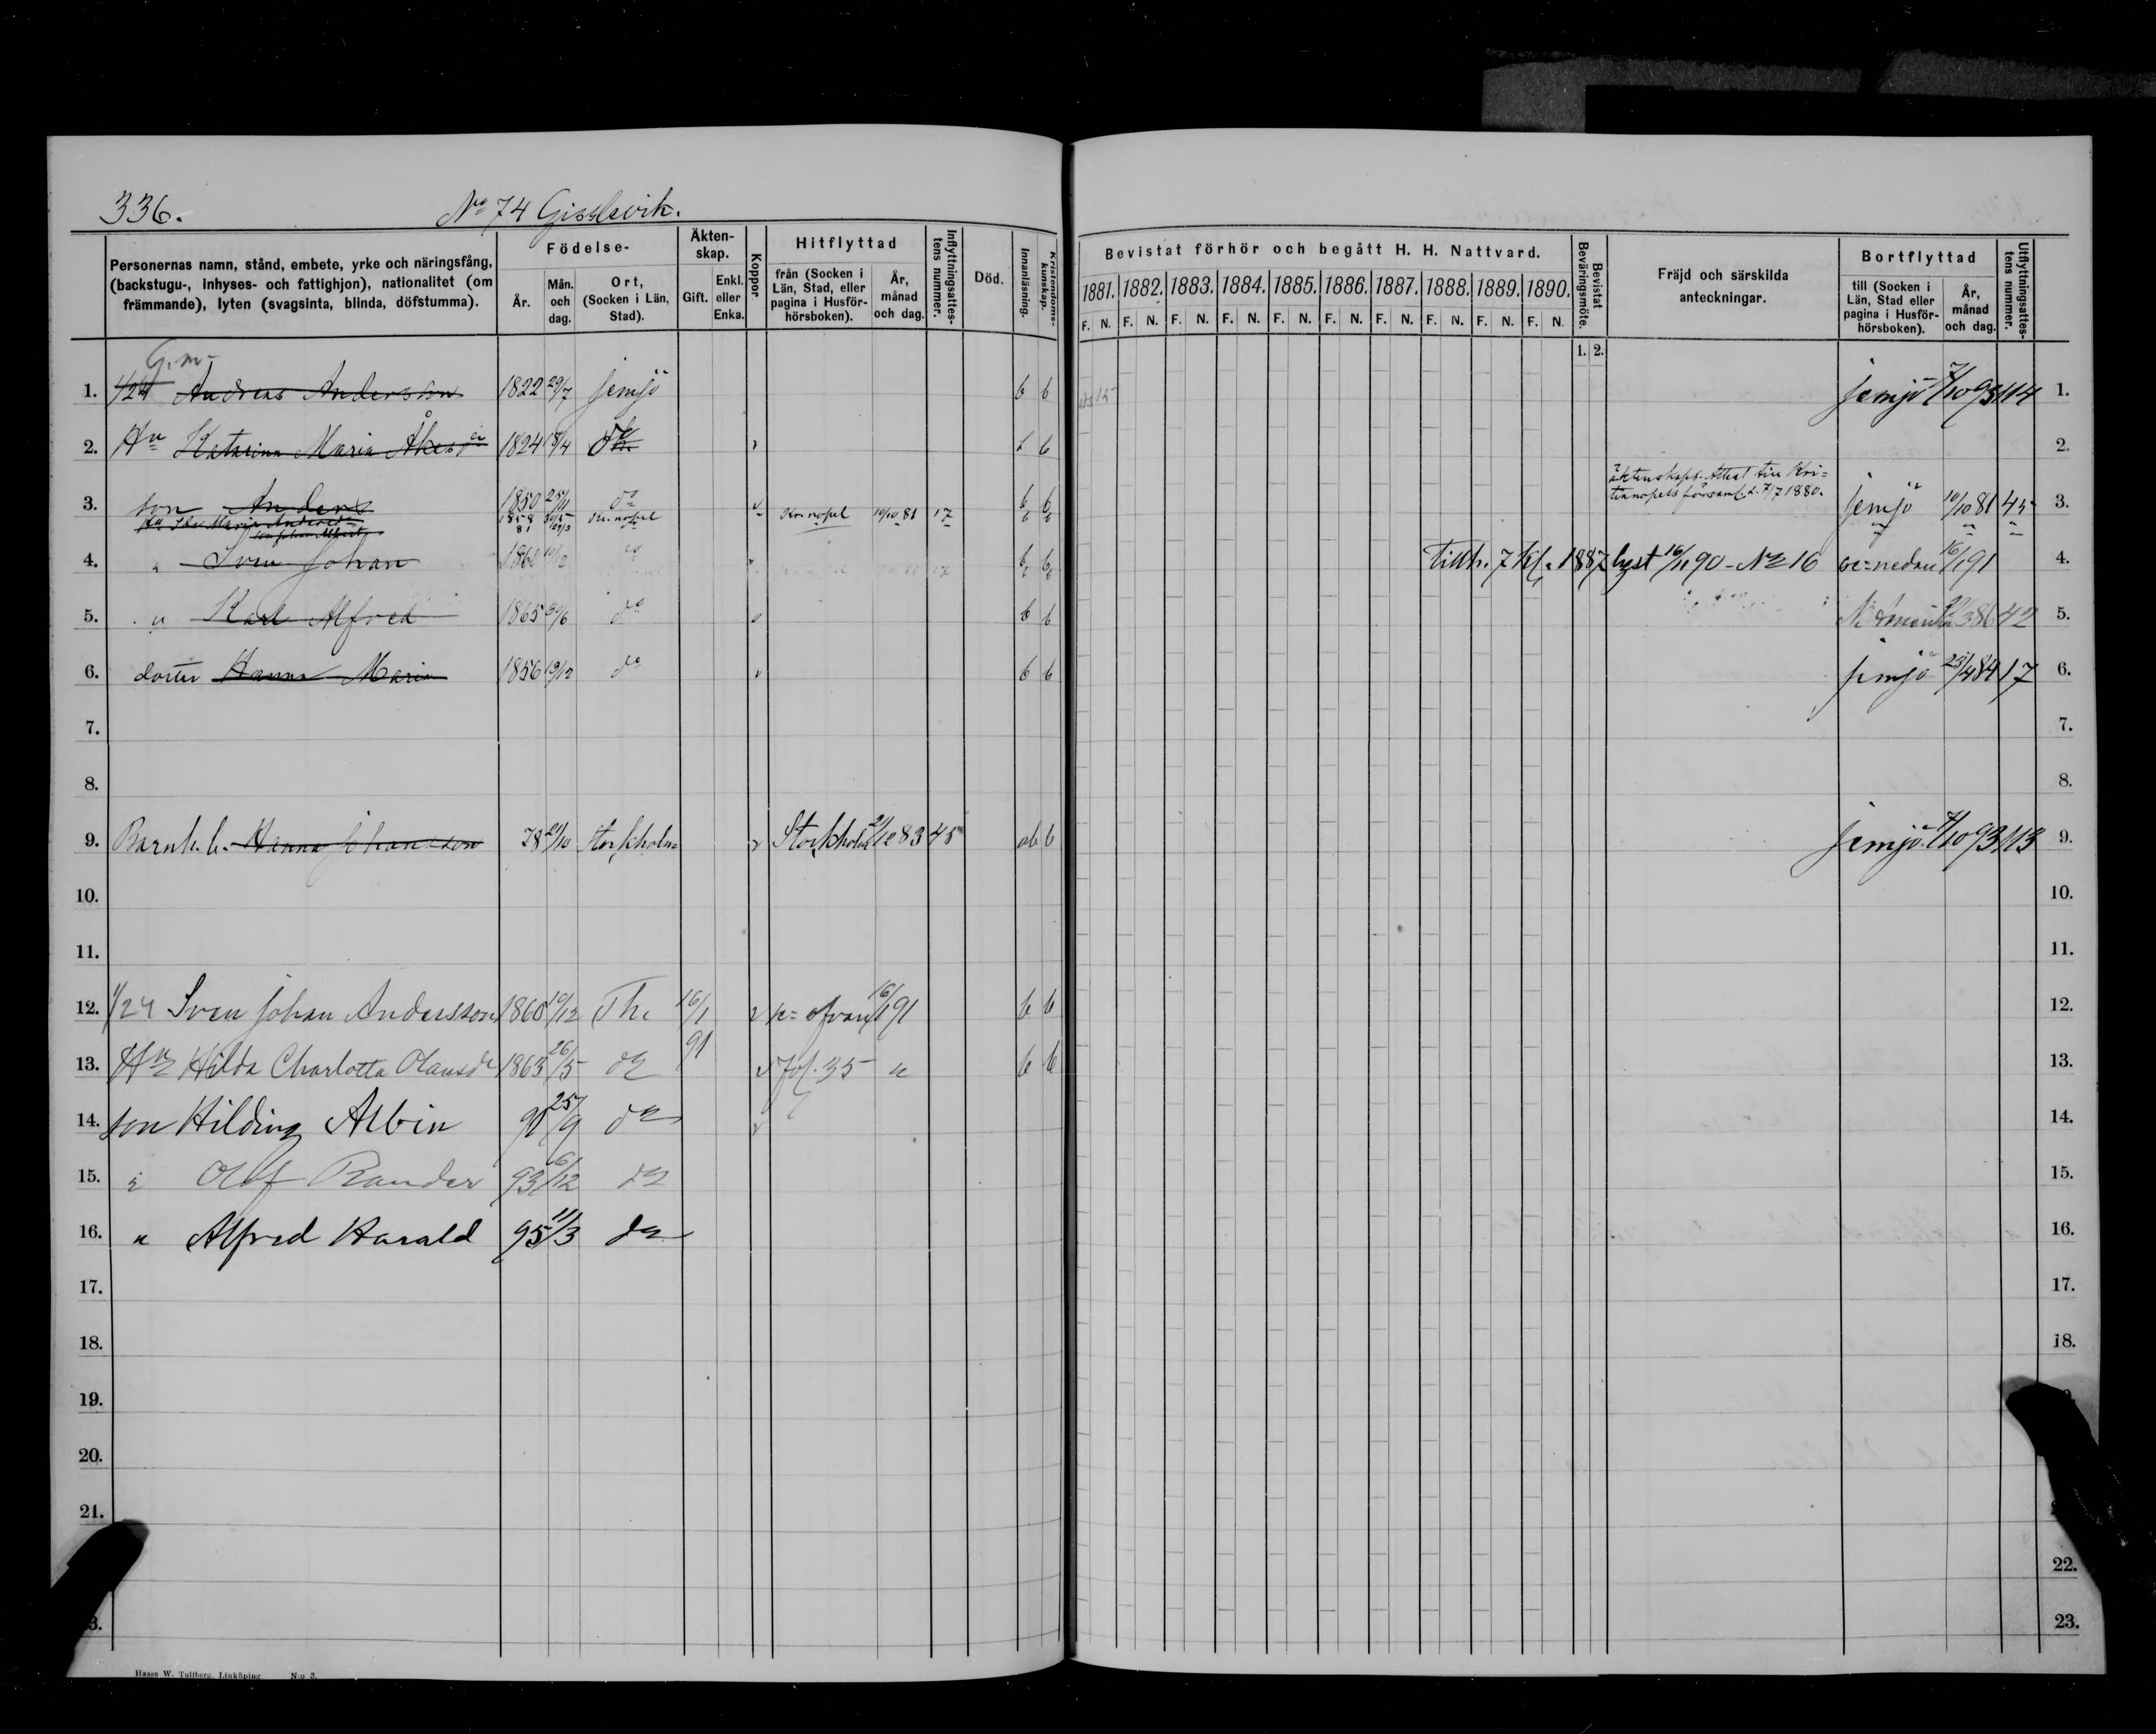 336.
No 74 Gisslevik.
Personernas namn, stånd, embete, yrke och näringsfång, (backstugu-, inhyses- och fattighjon), nationalitet (om främmande), lyten (svagsinta, blinda, döfstumma).
Födelse-
År.
Mån. och dag.
Ort, (Socken i Län, Stad).
Äkten-skap.
Gift.
Enkl. eller Enka.
Koppor.
Hitflyttad
från (Socken i Län, Stad, eller pagina i Husför-hörsboken).
År, månad och dag.
Inflyttningsattes-tens nummer.
Död.
Innanläsning.
Kristendoms-kunskap.
Bevistat förhör och begått H. H. Nattvard.
1881. 1882. 1883. 1884. 1885. 1886. 1887. 1888. 1889. 1890.
F. N. F. N. F. N. F. N. F. N. F. N. F. N. F. N. F. N. F. N.
Bevistat Beväringsmöte.
1. 2.
Fräjd och särskilda anteckningar.
Bortflyttad
till (Socken i Län, Stad eller pagina i Husför-hörsboken).
År, månad och dag.
Utflyttningsattes-tens nummer.
G. m.
1. 1/24 Andreas Andersson 1822 29/7 Jemjö b b Jemjö 7/10 93 114 1.
2. Hu Katarina Maria Åkesdr 1824 18/4 b 2.
äktenskaps-Attest till Kri=
tianopels församl. d. 7/7 1880.
3. son Anders 1850 25/11 do b b Jemjö 10/10 81 45 3.
Hu Ida Maria 1858 Kr.nopel Kr.nopel 10/10 81 17 b b
son Johan Albert 81
4. " Sven Johan 1860 10/12 do b b Tillh. 7 Kl. 1887 lyst 16/11 90 - No 16 se nedan 16/1 91 4.
5. " Karl Alfred 1865 30/6 do b b N. Amerika 86 42 5.
6. dotter Hanna Maria 1856 do b b Jemjö 25/4 84 17 6.
7. 7.
8. 8.
9. Barnh. b. Hanna Johansson 78 21/10 Stockholm Stockholm 21/12 83 45 ab b Jemjö 7/10 93 113 9.
10. 10.
11. 11.
12. 1/24 Sven Johan Andersson 1860 10/12 Th. 16/1 ofvan 16/1 91 b b 12.
91
13. Hu Hilda Charlotta Olausdr 1863 26/5 do Fol. 35 " b b 13.
14. son Hilding Albin 91 25/9 do 14.
15. " Olof Rander 93 6/12 do 15.
16. " Alfred Harald 95 11/3 do 16.
17. 17.
18. 18.
19.
20.
21.
22.
23.
Hasse W. Tullberg, Linköping N:o 3.